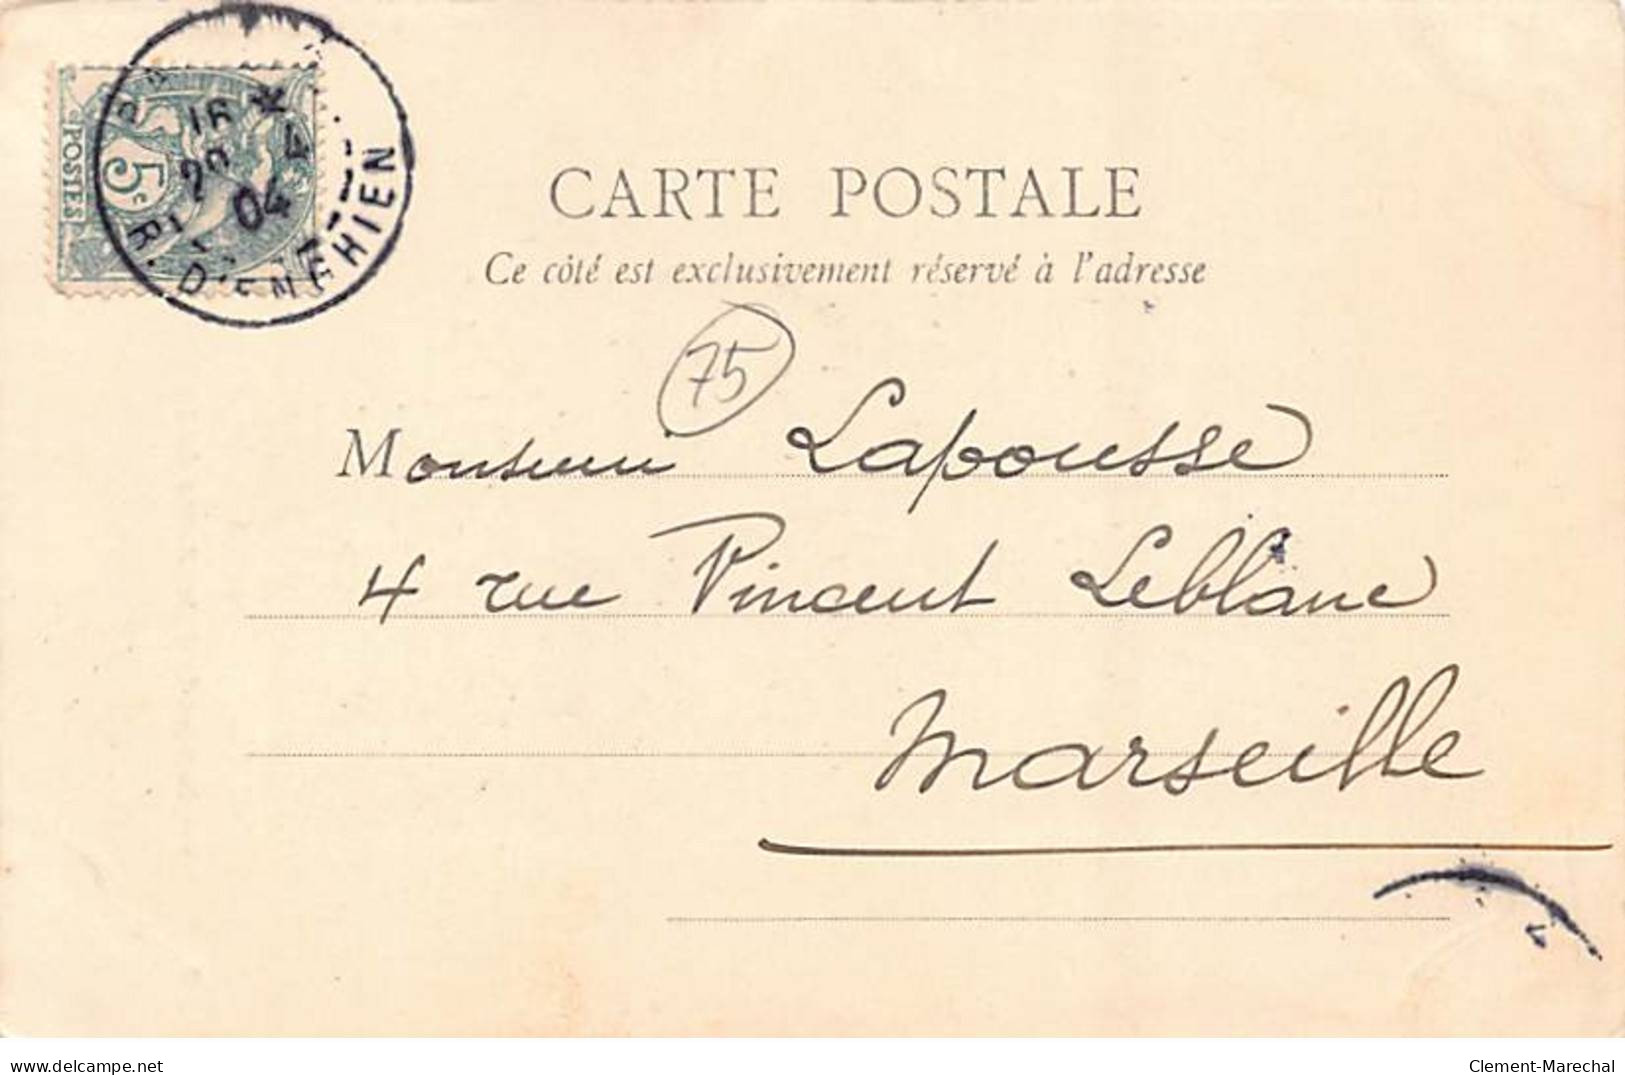 POSTES
5c
16
4
04
R. D'ENGHIEN
CARTE POSTALE
Ce côté est exclusivement réservé à l'adresse
75
Monsieur Lapousse
4 rue Vincent Leblanc
Marseille
www.delcampe.net
Clement-Marechal